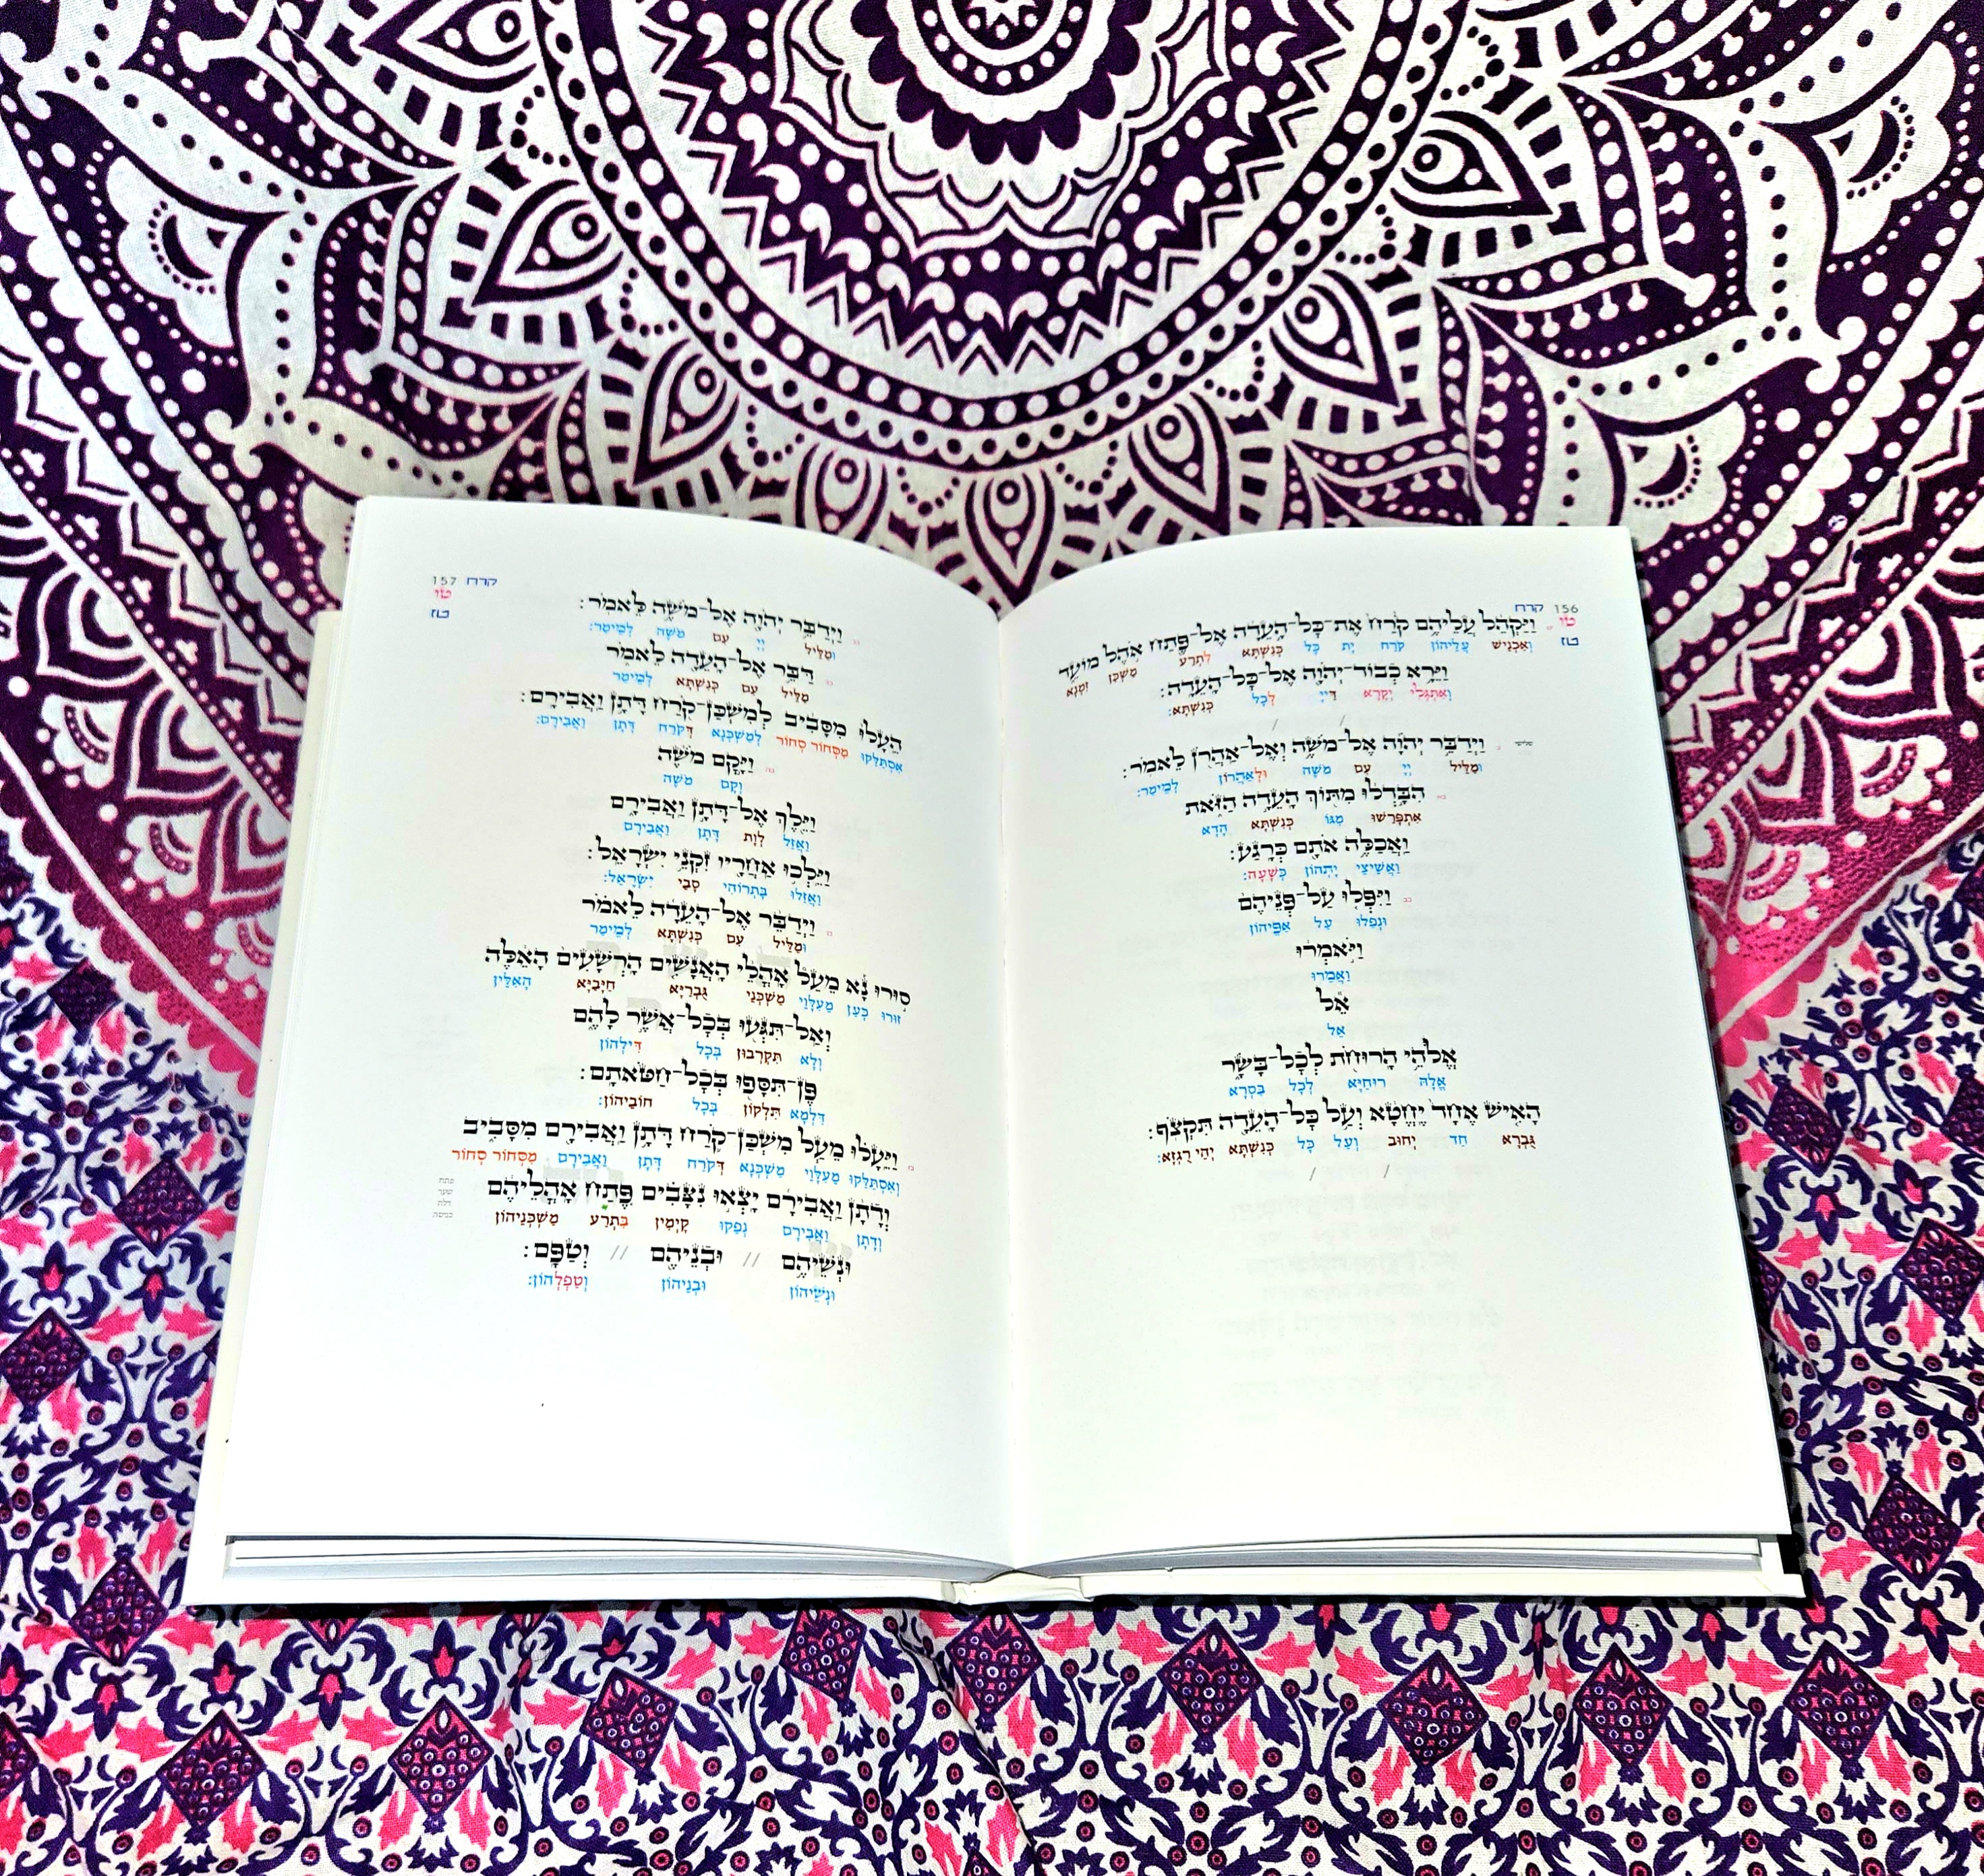 156 קרח
טו
טז
וַיַּקְהֵל עֲלֵיהֶם קֹרַח אֶת־כָּל־הָעֵדָה אֶל־פֶּתַח אֹהֶל מוֹעֵד
וְאַכְנֵישׁ עֲלֵיהוֹן קֹרַח יָת כָּל כְּנִשְׁתָּא לִתְרַע מַשְׁכַּן זִמְנָא
וַיֵּרָא כְבוֹד־יְהוָה אֶל־כָּל־הָעֵדָה׃
וְאִתְגְּלִי יְקָרָא דַּייָ לְכָל כְּנִשְׁתָּא׃
/ /
שלישי
וַיְדַבֵּר יְהוָה אֶל־מֹשֶׁה וְאֶל־אַהֲרֹן לֵאמֹר׃
וּמַלֵּיל יְיָ עִם מֹשֶׁה וּלְאַהֲרוֹן לְמֵימַר׃
הִבָּדְלוּ מִתּוֹךְ הָעֵדָה הַזֹּאת
אִתְפְּרַשׁוּ מִגּוֹ כְּנִשְׁתָּא הָדָא
וַאֲכַלֶּה אֹתָם כְּרָגַע׃
וַאֲשֵׁיצֵי יָתְהוֹן כְּשָׁעָה׃
וַיִּפְּלוּ עַל־פְּנֵיהֶם
וּנְפַלוּ עַל אַפֵּיהוֹן
וַיֹּאמְרוּ
וַאֲמַרוּ
אֵל
אֵל
אֱלֹהֵי הָרוּחֹת לְכָל־בָּשָׂר
אֱלָהּ רוּחַיָּא לְכָל בִּסְרָא
הָאִישׁ אֶחָד יֶחֱטָא וְעַל כָּל־הָעֵדָה תִּקְצֹף׃
גֻּבְרָא חַד יְחוּב וְעַל כָּל כְּנִשְׁתָּא יְהֵי רֻגְזָא׃
/ /
קרח 157
טו
טז
וַיְדַבֵּר יְהוָה אֶל־מֹשֶׁה לֵּאמֹר׃
וּמַלֵּיל יְיָ עִם מֹשֶׁה לְמֵימַר׃
דַּבֵּר אֶל־הָעֵדָה לֵאמֹר
מַלֵּיל עִם כְּנִשְׁתָּא לְמֵימַר
הֵעָלוּ מִסָּבִיב לְמִשְׁכַּן־קֹרַח דָּתָן וַאֲבִירָם׃
אִסְתַּלַּקוּ מִסְּחוֹר סְחוֹר לְמַשְׁכְּנָא דְּקֹרַח דָּתָן וַאֲבִירָם׃
וַיָּקָם מֹשֶׁה
וְקָם מֹשֶׁה
וַיֵּלֶךְ אֶל־דָּתָן וַאֲבִירָם
וַאֲזַל לְוָת דָּתָן וַאֲבִירָם
וַיֵּלְכוּ אַחֲרָיו זִקְנֵי יִשְׂרָאֵל׃
וַאֲזַלוּ בָּתְרוֹהִי סָבֵי יִשְׂרָאֵל׃
וַיְדַבֵּר אֶל־הָעֵדָה לֵאמֹר
וּמַלֵּיל עִם כְּנִשְׁתָּא לְמֵימַר
סוּרוּ נָא מֵעַל אָהֳלֵי הָאֲנָשִׁים הָרְשָׁעִים הָאֵלֶּה
זוּרוּ כְּעַן מֵעִלָּוֵי מַשְׁכְּנֵי גֻּבְרַיָּא חַיָּבַיָּא הָאִלֵּין
וְאַל־תִּגְּעוּ בְּכָל־אֲשֶׁר לָהֶם
וְלָא תִּקְרְבוּן בְּכָל דִּילְהוֹן
פֶּן־תִּסָּפוּ בְּכָל־חַטֹּאתָם׃
דִּלְמָא תִּלְקוֹן בְּכָל חוֹבֵיהוֹן׃
וַיֵּעָלוּ מֵעַל מִשְׁכַּן־קֹרַח דָּתָן וַאֲבִירָם מִסָּבִיב
וְאִסְתַּלַּקוּ מֵעִלָּוֵי מַשְׁכְּנָא דְּקֹרַח דָּתָן וַאֲבִירָם מִסְּחוֹר סְחוֹר
וְדָתָן וַאֲבִירָם יָצְאוּ נִצָּבִים פֶּתַח אָהֳלֵיהֶם
וְדָתָן וַאֲבִירָם נְפַקוּ קָיְמִין בִּתְרַע מַשְׁכְּנֵיהוֹן
פתח
שער
דלת
כניסה
וּנְשֵׁיהֶם // וּבְנֵיהֶם // וְטַפָּם׃
וּנְשֵׁיהוֹן וּבְנֵיהוֹן וְטַפְלְהוֹן׃